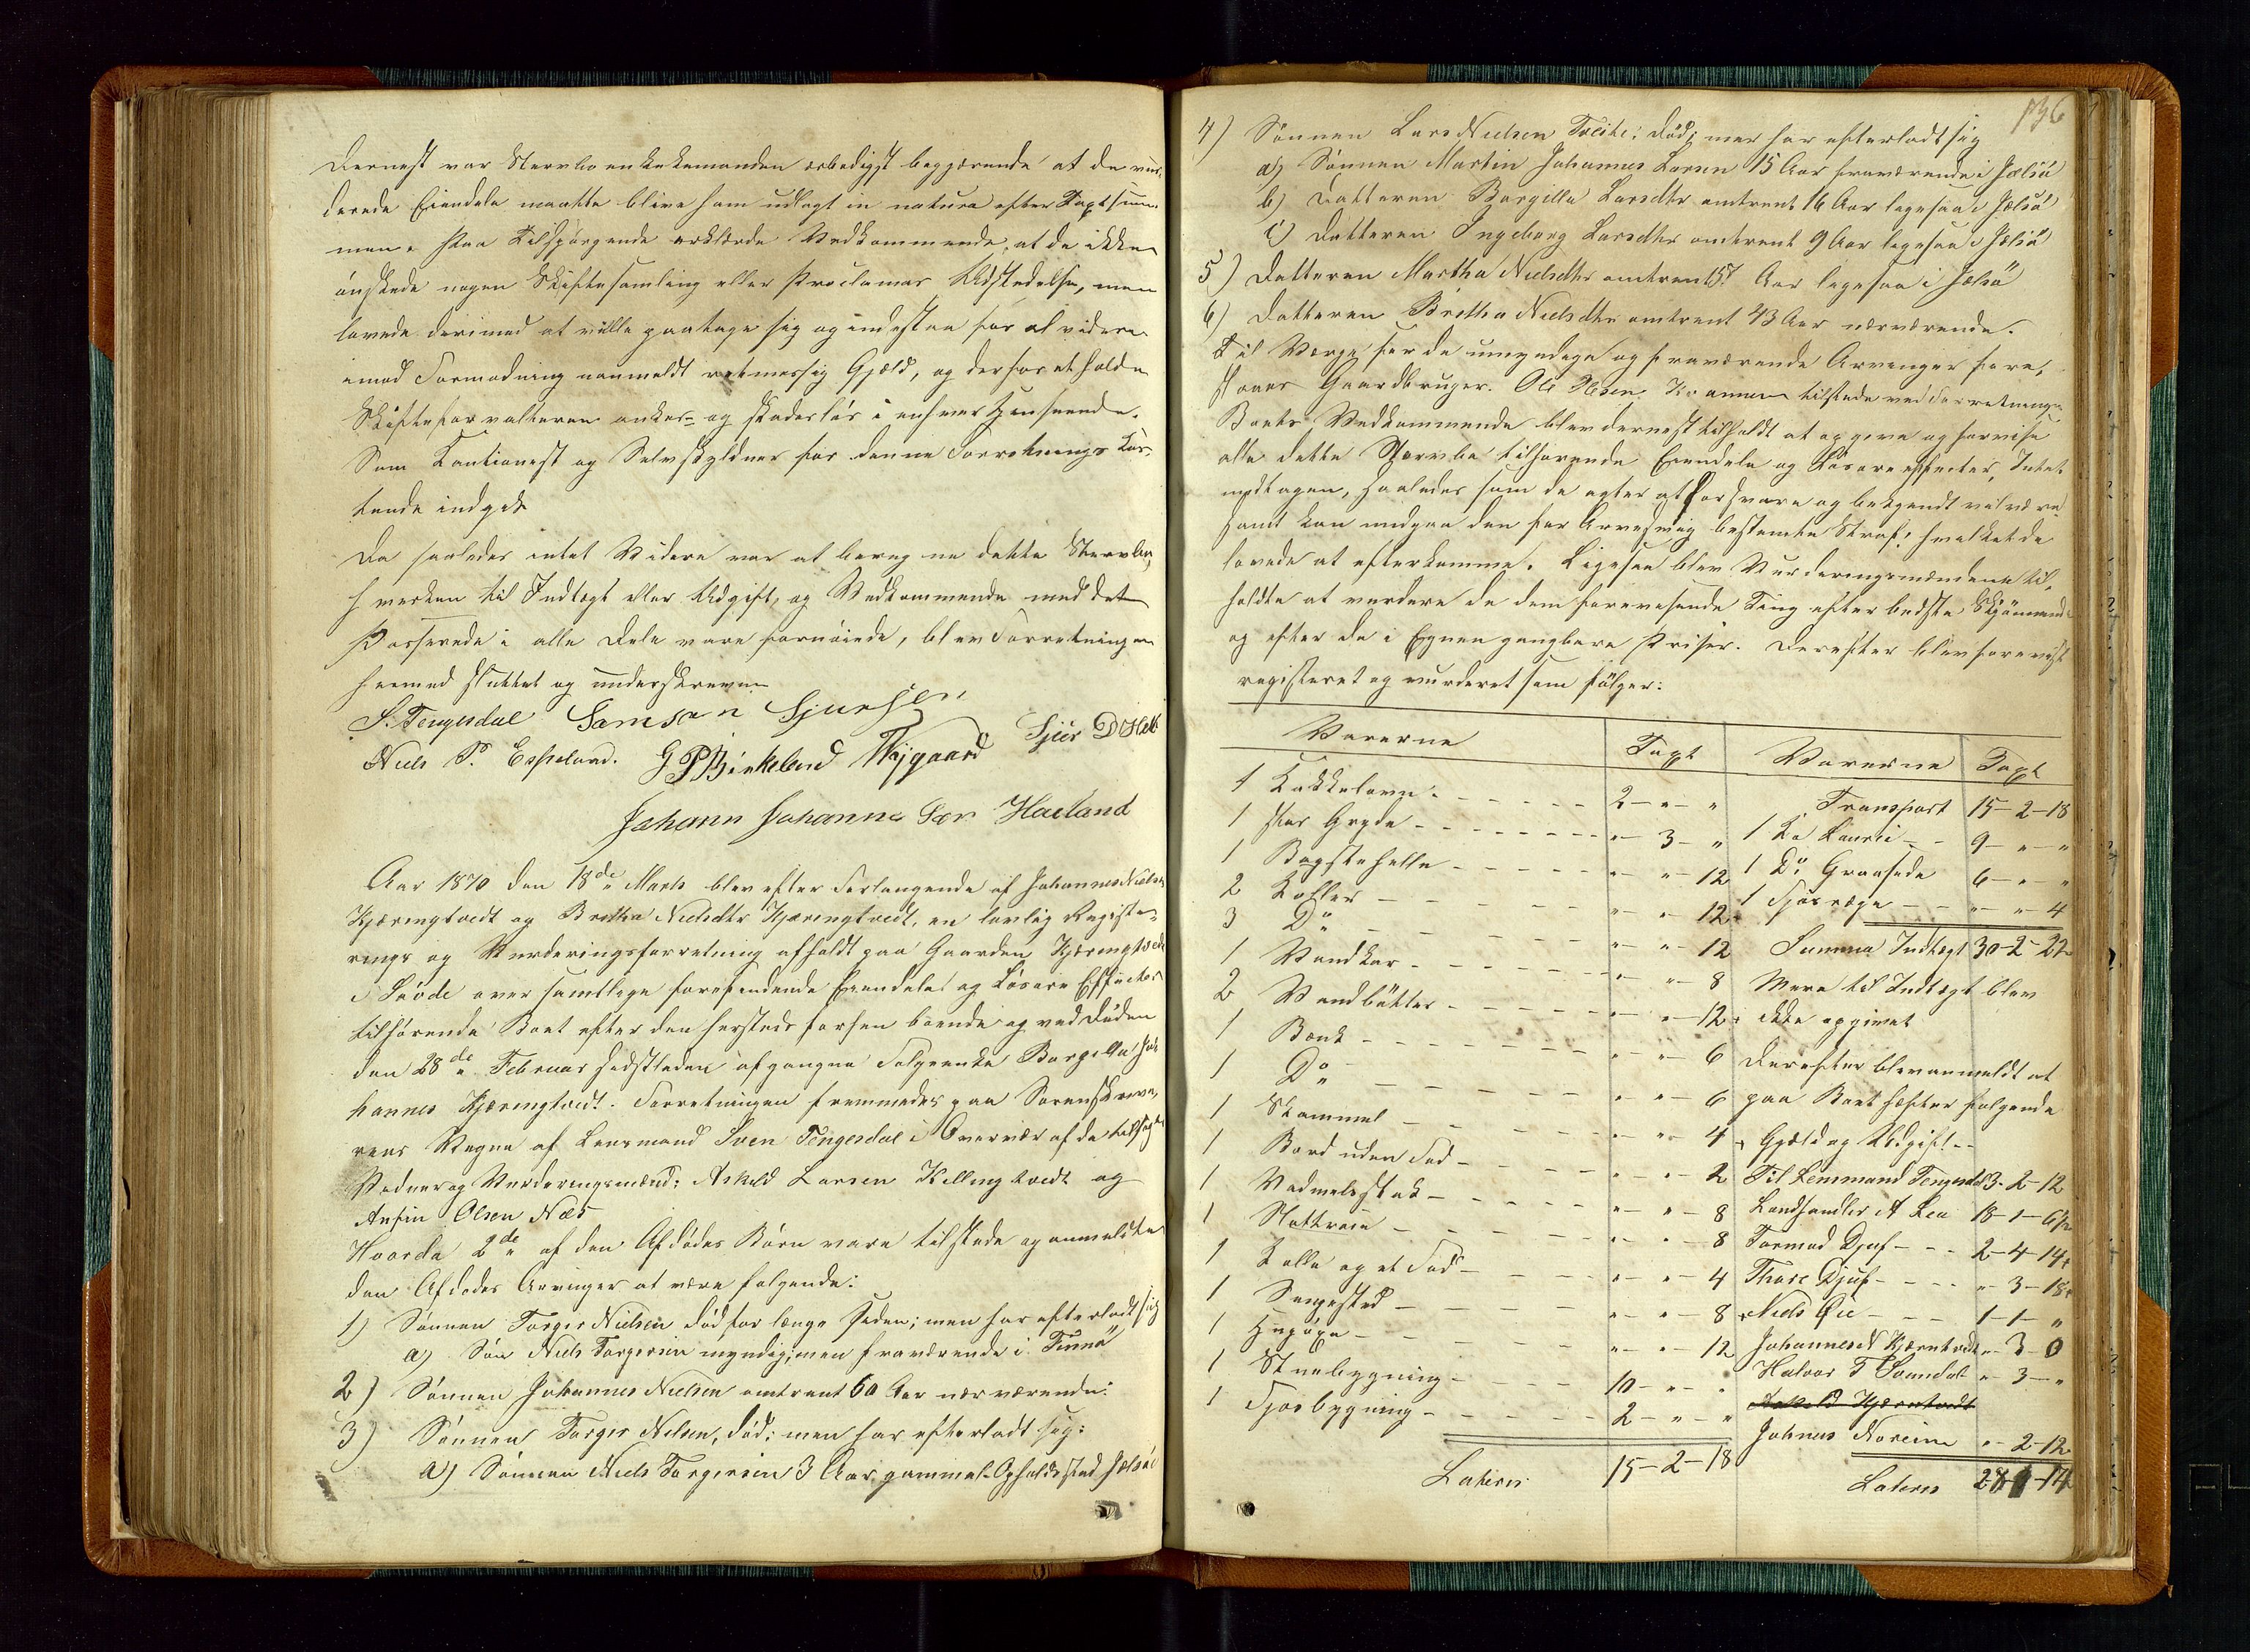 Dernest var Stervboenkekemanden ærbødigst begjærende at de vur-
derede Eiendele maatte blive ham udlagt in natura efter Taxtsum-
men. Paa Tilspørgende erklærde Vedkommende, at de ikke
ønskede nogen Skiftesamling eller Proclamas Udstedelse, men
lovede derimod at ville paatage sig og indestaa for al videre
imod Formodning uanmeldt retmessig Gjæld, og derfor at holde
Skifteforvalteren anker- og skadesløs i enhver Henseende.
Som Kautionest og Selvskyldner for denne Forretnings Løf-
tende indgik
Da saaledes intet Videre var at beregne dette Stervbo,
hverken til Indtægt eller Udgift, og Vedkommende med det
Passerede i alle Dele vare fornøiede, blev Forretningen
hermed sluttet og underskreven
S. Tengesdal Samson Sjursen
Niels P. Espeland. G P Birkeland Nygaard Sjur D Hebn
Johann Johannesen Haeland
Aar 1870 den 18de Marts blev efter Forlangende af Johannes Nielsen
Kjæringtvedt og Britha Nielsdtr Kjæringtvedt, en lovlig Registe-
rings og Vurderingsforretning afholdt paa Gaarden Kjæringtvedt
i Søvde over samtlige forefindende Eiendele og Løsøre Effecter
tilhørende Boet efter den hersteds forhen boende og ved Døden
den 28de Februar sidstleden afgangne Folgeenke Borgilla Jo-
hannes Kjæringtvedt. Forretningen fremmedes paa Sorenskrive-
rens Vegne af Lensmand Sven Tengesdal i Overvær af de tilsagte
Vidner og Vurderingsmænd: Askild Larsen Killingtvedt og
Anfin Olsen Næs
Hvorda 2de af den Afdødes Børn vare tilstede og anmeldte
den Afdødes Arvinger at være følgende:
1) Sønnen Torger Nielsen død for lenge siden; men har efterladt sig
a) Søn Niels Torgersen myndig; men fraværende i Finnö
2) Sønnen Johannes Nielsen omtrent 60 Aar nærværende.
3) Sønnen Torger Nilsen, død; men har efterladt sig:
a) Sønnen Niels Torgersen 3 Aar gammel. Opholdssted Jælsö
136
4) Sønnen Lars Nielsen Tveite; død; men har efterladt sig
a) Sønnen Martin Johannes Larsen 15 Aar fraværende i Jælsö
b) Datteren Borgilla Larsdtr omtrent 16 Aar ligesaa i Jælsö
c) Datteren Ingeborg Larsdtr omtrent 9 Aar ligesaa i Jælsö
5) Datteren Martha Nielsdtr omtrent 57 Aar ligesaa i Jælsö
6) Datteren Britha Nielsdtr omtrent 43 Aar nærværende.
Til Værge for de umyndige og fraværende Arvinger fore-
sloges Gaardbruger Ole Olsen tilstede ved Forretningen
Boets Vedkommende blev dernest tilholdt at opgive og forvise
alle dette Stervbo tilhørende Eiendele og Løsøreeffecter, Intet
undtagen, saaledes som de agter at forsvare og bekjendt vil være
samt kan undgaa den for Arvesvig bestemte Straf; hvilket de
lovede at efterkomme. Ligesaa blev Vurderingsmændene til-
holdte at vurdere de dem forevisende Ting efter bedste Skjønnende
og efter de i Egnen gangbare Priser. Derefter blev forevist
registeret og vurderet som følger:
Varerne Taxt Varerne Taxt
1 Kakkelovn 2 - " - " Transport 15-2-18
1 stor Gryde " - 3 - " 1 Ko Laurei 9 - " - "
1 Bagstehelle " - " - 12 1 Do Graaside 6 - " - "
2 Koller " - " - 12 1 " - " - 4
3 Do " - " - 12 Summa Indtægt 30-2-22
1 Vandkar " - " - 8 Mere til Indtægt blev
2 Vandbøtter " - " - 12 ikke opgivet
1 Bænk " - " - 6 Derefter blev anmeldt at
1 Do " - " - 6 paa Boet hæfter følgende
1 Skammel " - " - 4 Gjæld og Udgift
1 Bord uden Fod " - " - 2 Til Lensmand Tengesdal 3-2-12
1 Vadmelsstak " - " - 8 Landhandler A Lea 18-1-6½
1 " - " - 8 Tormod Djuf 2-4-14
1 Kolle og et Fad " - " - 4 Thore Djuf " - 3-18
1 Sengested " - " - 8 Niels Øie 1-1-"
1 " - " - 12 Johannes N Kjærntvedt " - 3-0
1 Stuebygning 10 - " - " Halvor T Søundal " - 3 - "
1 Fjosbygning 2 - " - " Askild Kjærntvedt
Johnes Noreim " - 2-12
Lateris 15-2-18 Lateris 27-1-14